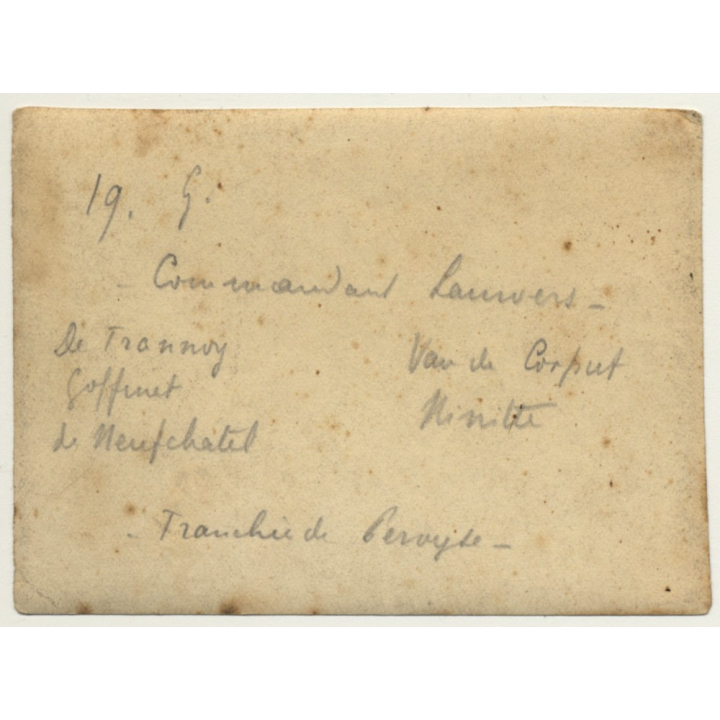 19. G.
- Commandant Lauwers -
De Trannoy Van de Corput
Goffinet Ninitte
de Neufchatel
- Tranchée de Pervyse -